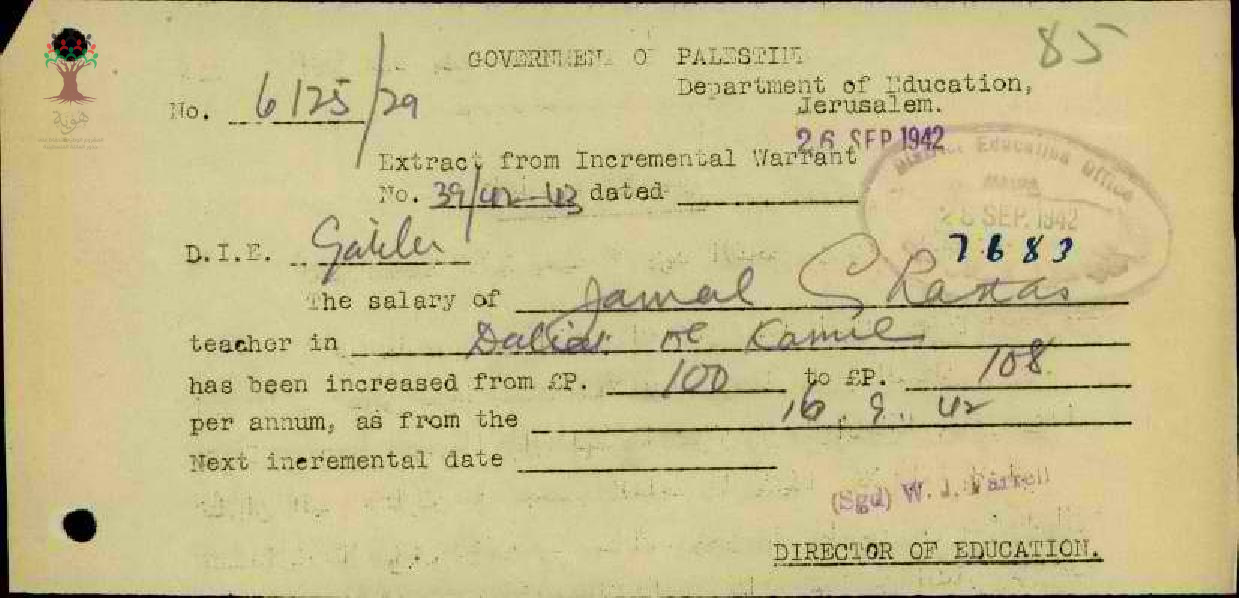 85
GOVERNMENT OF PALESTINE
Department of Education,
Jerusalem.
No. 6125/29
26 SEP 1942
Extract from Incremental Warrant
No. 39/42-43 dated
District Education Office
HAIFA
28 SEP. 1942
7683
D.I.E. Galilee
The salary of Jamal
teacher in Daliat el Karmel
has been increased from £P. 100 to £P. 108
per annum, as from the 16.9.42
Next incremental date
(Sgd) W. J. Farrell
DIRECTOR OF EDUCATION.
هوية